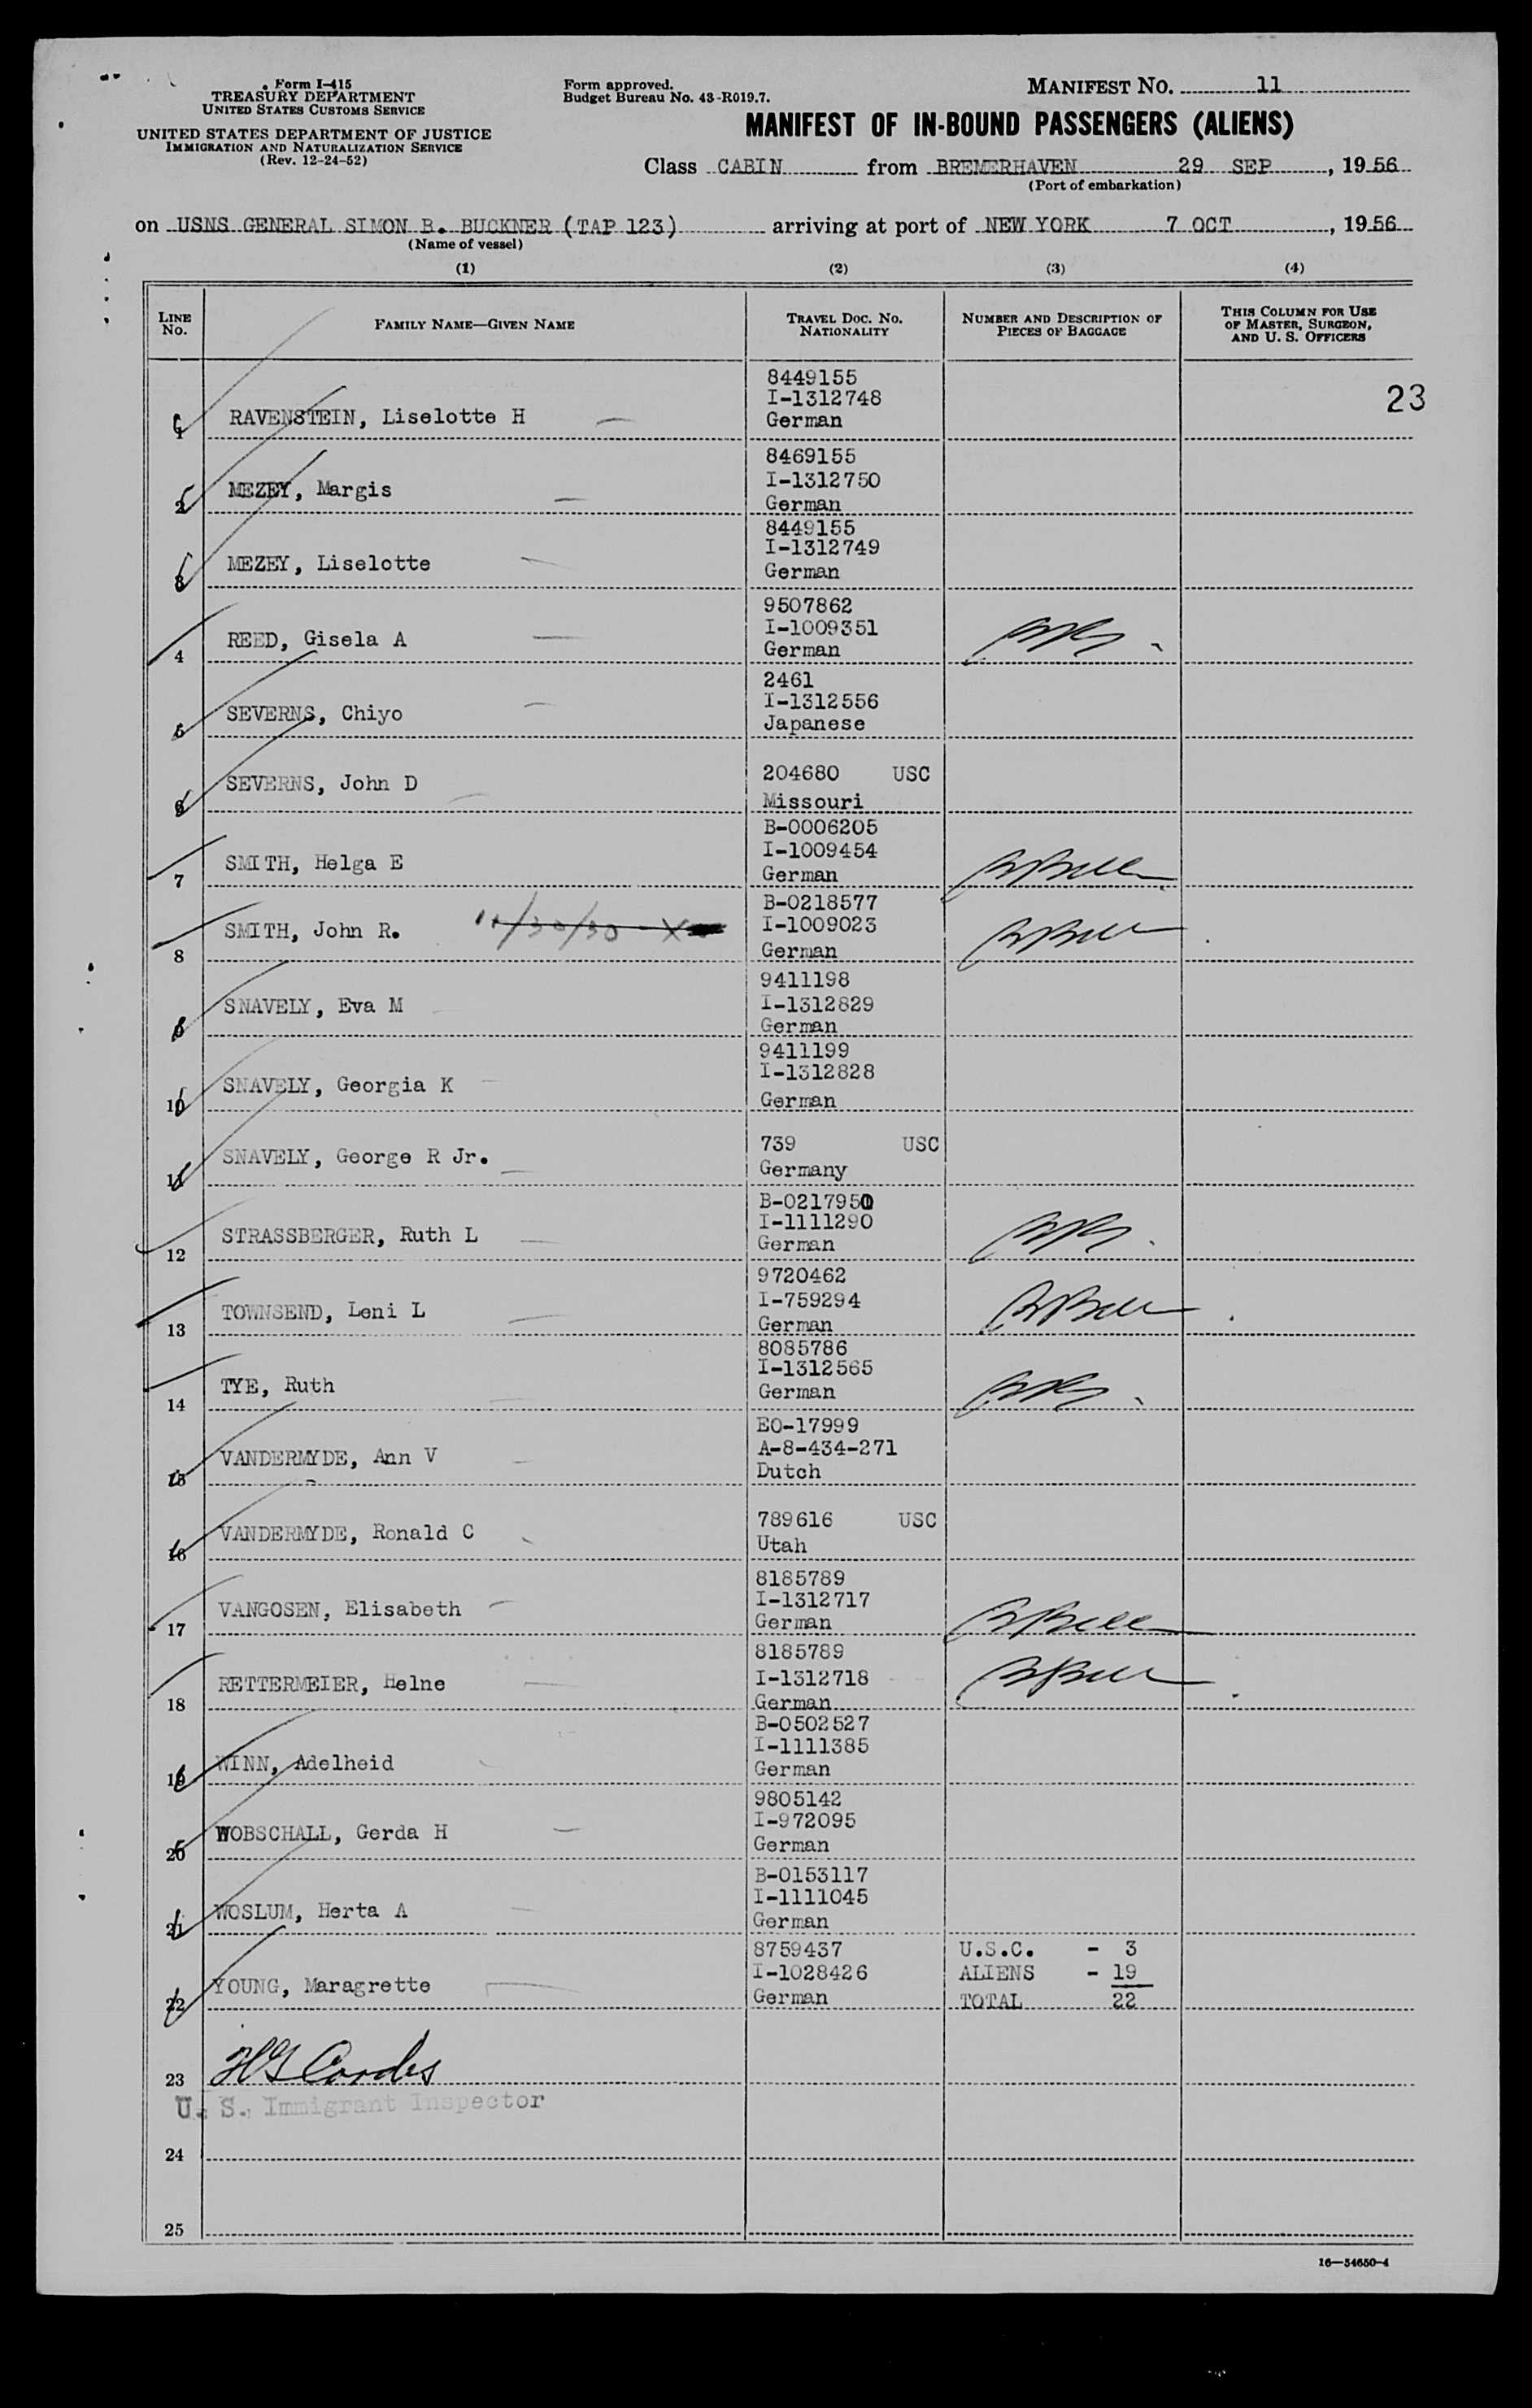 Form I-415
TREASURY DEPARTMENT
UNITED STATES CUSTOMS SERVICE
UNITED STATES DEPARTMENT OF JUSTICE
IMMIGRATION AND NATURALIZATION SERVICE
(Rev. 12-24-52)
Form approved.
Budget Bureau No. 43-R019.7.
MANIFEST NO. 11
MANIFEST OF IN-BOUND PASSENGERS (ALIENS)
Class CABIN from BREMERHAVEN 29 SEP, 1956
(Port of embarkation)
on USNS GENERAL SIMON B. BUCKNER (TAP 123) arriving at port of NEW YORK 7 OCT, 1956
(Name of vessel)
(1) (2) (3) (4)
LINE No. FAMILY NAME—GIVEN NAME TRAVEL DOC. NO. NATIONALITY NUMBER AND DESCRIPTION OF PIECES OF BAGGAGE THIS COLUMN FOR USE OF MASTER, SURGEON, AND U. S. OFFICERS
23
8449155
I-1312748
1 RAVENSTEIN, Liselotte H German
8469155
I-1312750
2 MEZEY, Margis German
8449155
I-1312749
3 MEZEY, Liselotte German
9507862
I-1009351
4 REED, Gisela A German
2461
I-1312556
5 SEVERNS, Chiyo Japanese
204680 USC
6 SEVERNS, John D Missouri
B-0006205
I-1009454
7 SMITH, Helga E German
B-0218577
I-1009023
8 SMITH, John R. German
9411198
I-1312829
9 SNAVELY, Eva M German
9411199
I-1312828
10 SNAVELY, Georgia K German
739 USC
11 SNAVELY, George R Jr. Germany
I-1111290
12 STRASSBERGER, Ruth L German
9720462
I-759294
13 TOWNSEND, Leni L German
8085786
I-1312565
14 TYE, Ruth German
EO-17999
A-8-434-271
15 VANDERMYDE, Ann V Dutch
789616 USC
16 VANDERMYDE, Ronald C Utah
8185789
I-1312717
17 VANGOSEN, Elisabeth German
8185789
I-1312718
18 RETTERMEIER, Helne German
B-0502527
I-1111385
19 WINN, Adelheid German
9805142
I-972095
20 WOBSCHALL, Gerda H German
B-0153117
I-1111045
21 WOSLUM, Herta A German
8759437 U.S.C. - 3
I-1028426 ALIENS - 19
22 YOUNG, Maragrette German TOTAL 22
23
U. S. Immigrant Inspector
24
25
16—54650-4